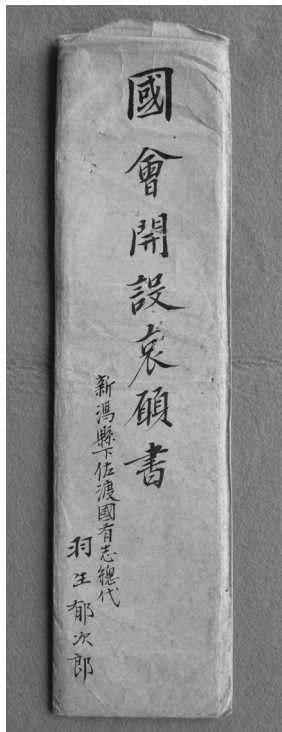 國會開設哀願書
新潟縣下佐渡國有志總代
羽生郁次郎